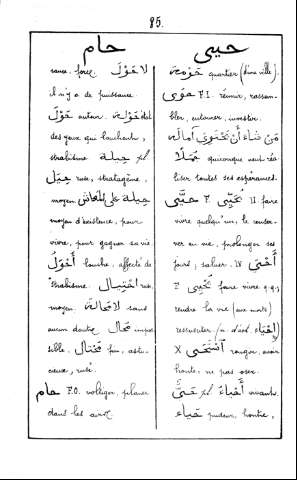 85.
حام
sance, force. لا حَوْلَ
il n'y a de puissance
حَوْلَ autour. حَوْلَة état
des yeux qui louchent,
strabisme حِيلَة pl.
حِيَل ruse, stratagème,
moyen حِيلَة عَلَى المَعَاش
moyen d'existence, pour
vivre, pour gagner sa vie.
أَحْوَلُ louche, affecté de
strabisme. اِحْتِيَال ruse,
moyen. لا مَحَالَةَ sans
aucun doute مُحَال impos
sible. مُحْتَال fin, astu-
cieux, rusé.
حام F.O. voltiger, planer
dans les airs.
حيى
حَوْمَة quartier (d'une ville).
حَوَى F.I. réunir, rassem-
bler, entourer, investir.
مَن شَاءَ أَن يَحْتَوِيَ آمَالَهُ
جُمَلًا quiconque veut réa
liser toutes ses espérances.
حَيَّى يُحَيِّي II faire
vivre quelqu'un, le conser-
ver en vie, prolonger ses
jours, saluer. IV أَحْيَى
يُحْيِي faire vivre q.q.,
rendre la vie (aux morts)
ressusciter. إِحْيَاء
X اِسْتَحْيَى rougir, avoir
honte, ne pas oser.
حَيّ pl. أَحْيَاء vivant.
حَيَاء pudeur, honte,